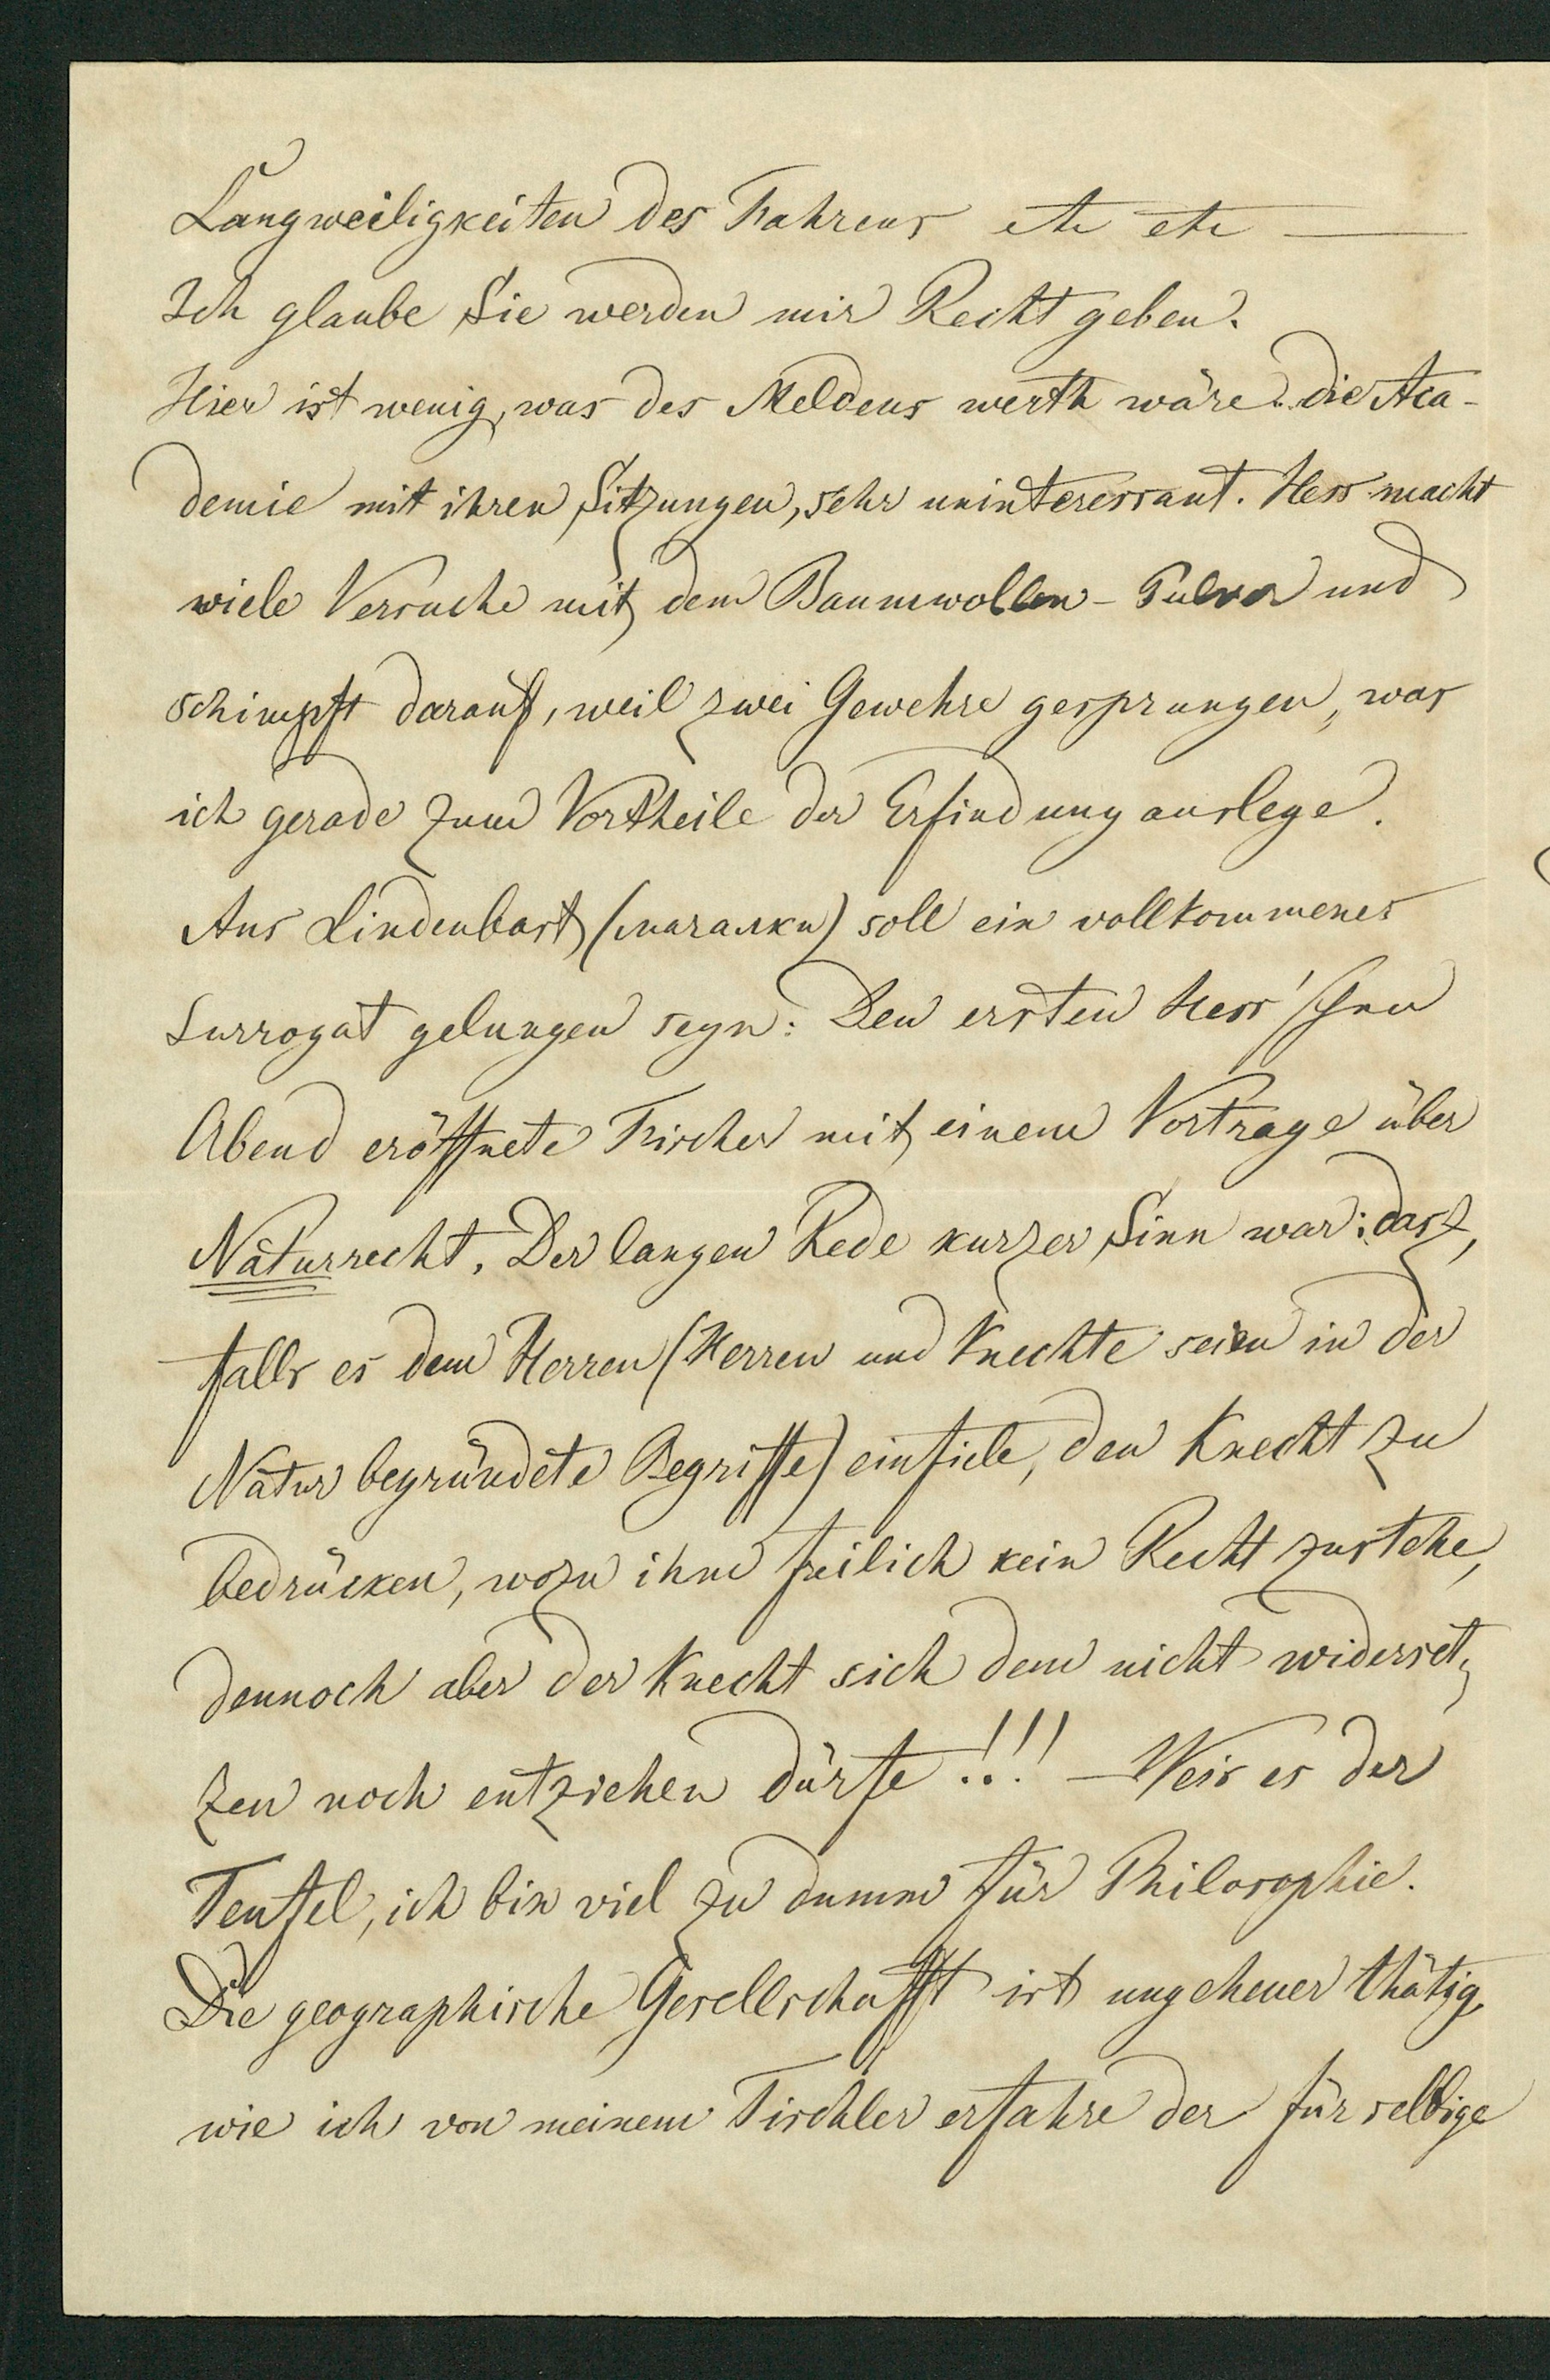 Langweiligkeiten des Fahrens etc etc —
Ich glaube Sie werden mir Recht geben.
Hier ist wenig, was des Meldens werth wäre. die Aca-
demie mit ihren Sitzungen, sehr uninteressant. Hess macht
viele Versuche mit dem Baumwollen-Pulver und
schimpft darauf, weil zwei Gewehre gesprungen, was
ich gerade zum Vortheile der Erfindung auslege.
Aus Lindenbast (мачалки) soll ein vollkommenes
Surrogat gelungen seyn: Den ersten Hess'schen
Abend eröffnete Fischer mit einem Vortrage über
Naturrecht. Der langen Rede kurzer Sinn war: dasz,
falls es dem Herren (Herren und Knechte seien in der
Natur begründete Begriffe) einfiele, den Knecht zu
bedrücken, wozu ihm freilich kein Recht zustehe,
dennoch aber der Knecht sich dem nicht widerset,
zen noch entziehen dürfe!!! — Weis es der
Teufel, ich bin viel zu dumm für Philosophie.
Die geographische Gesellschafft ist ungeheuer thätig,
wie ich von meinem Tischler erfahre der für selbige